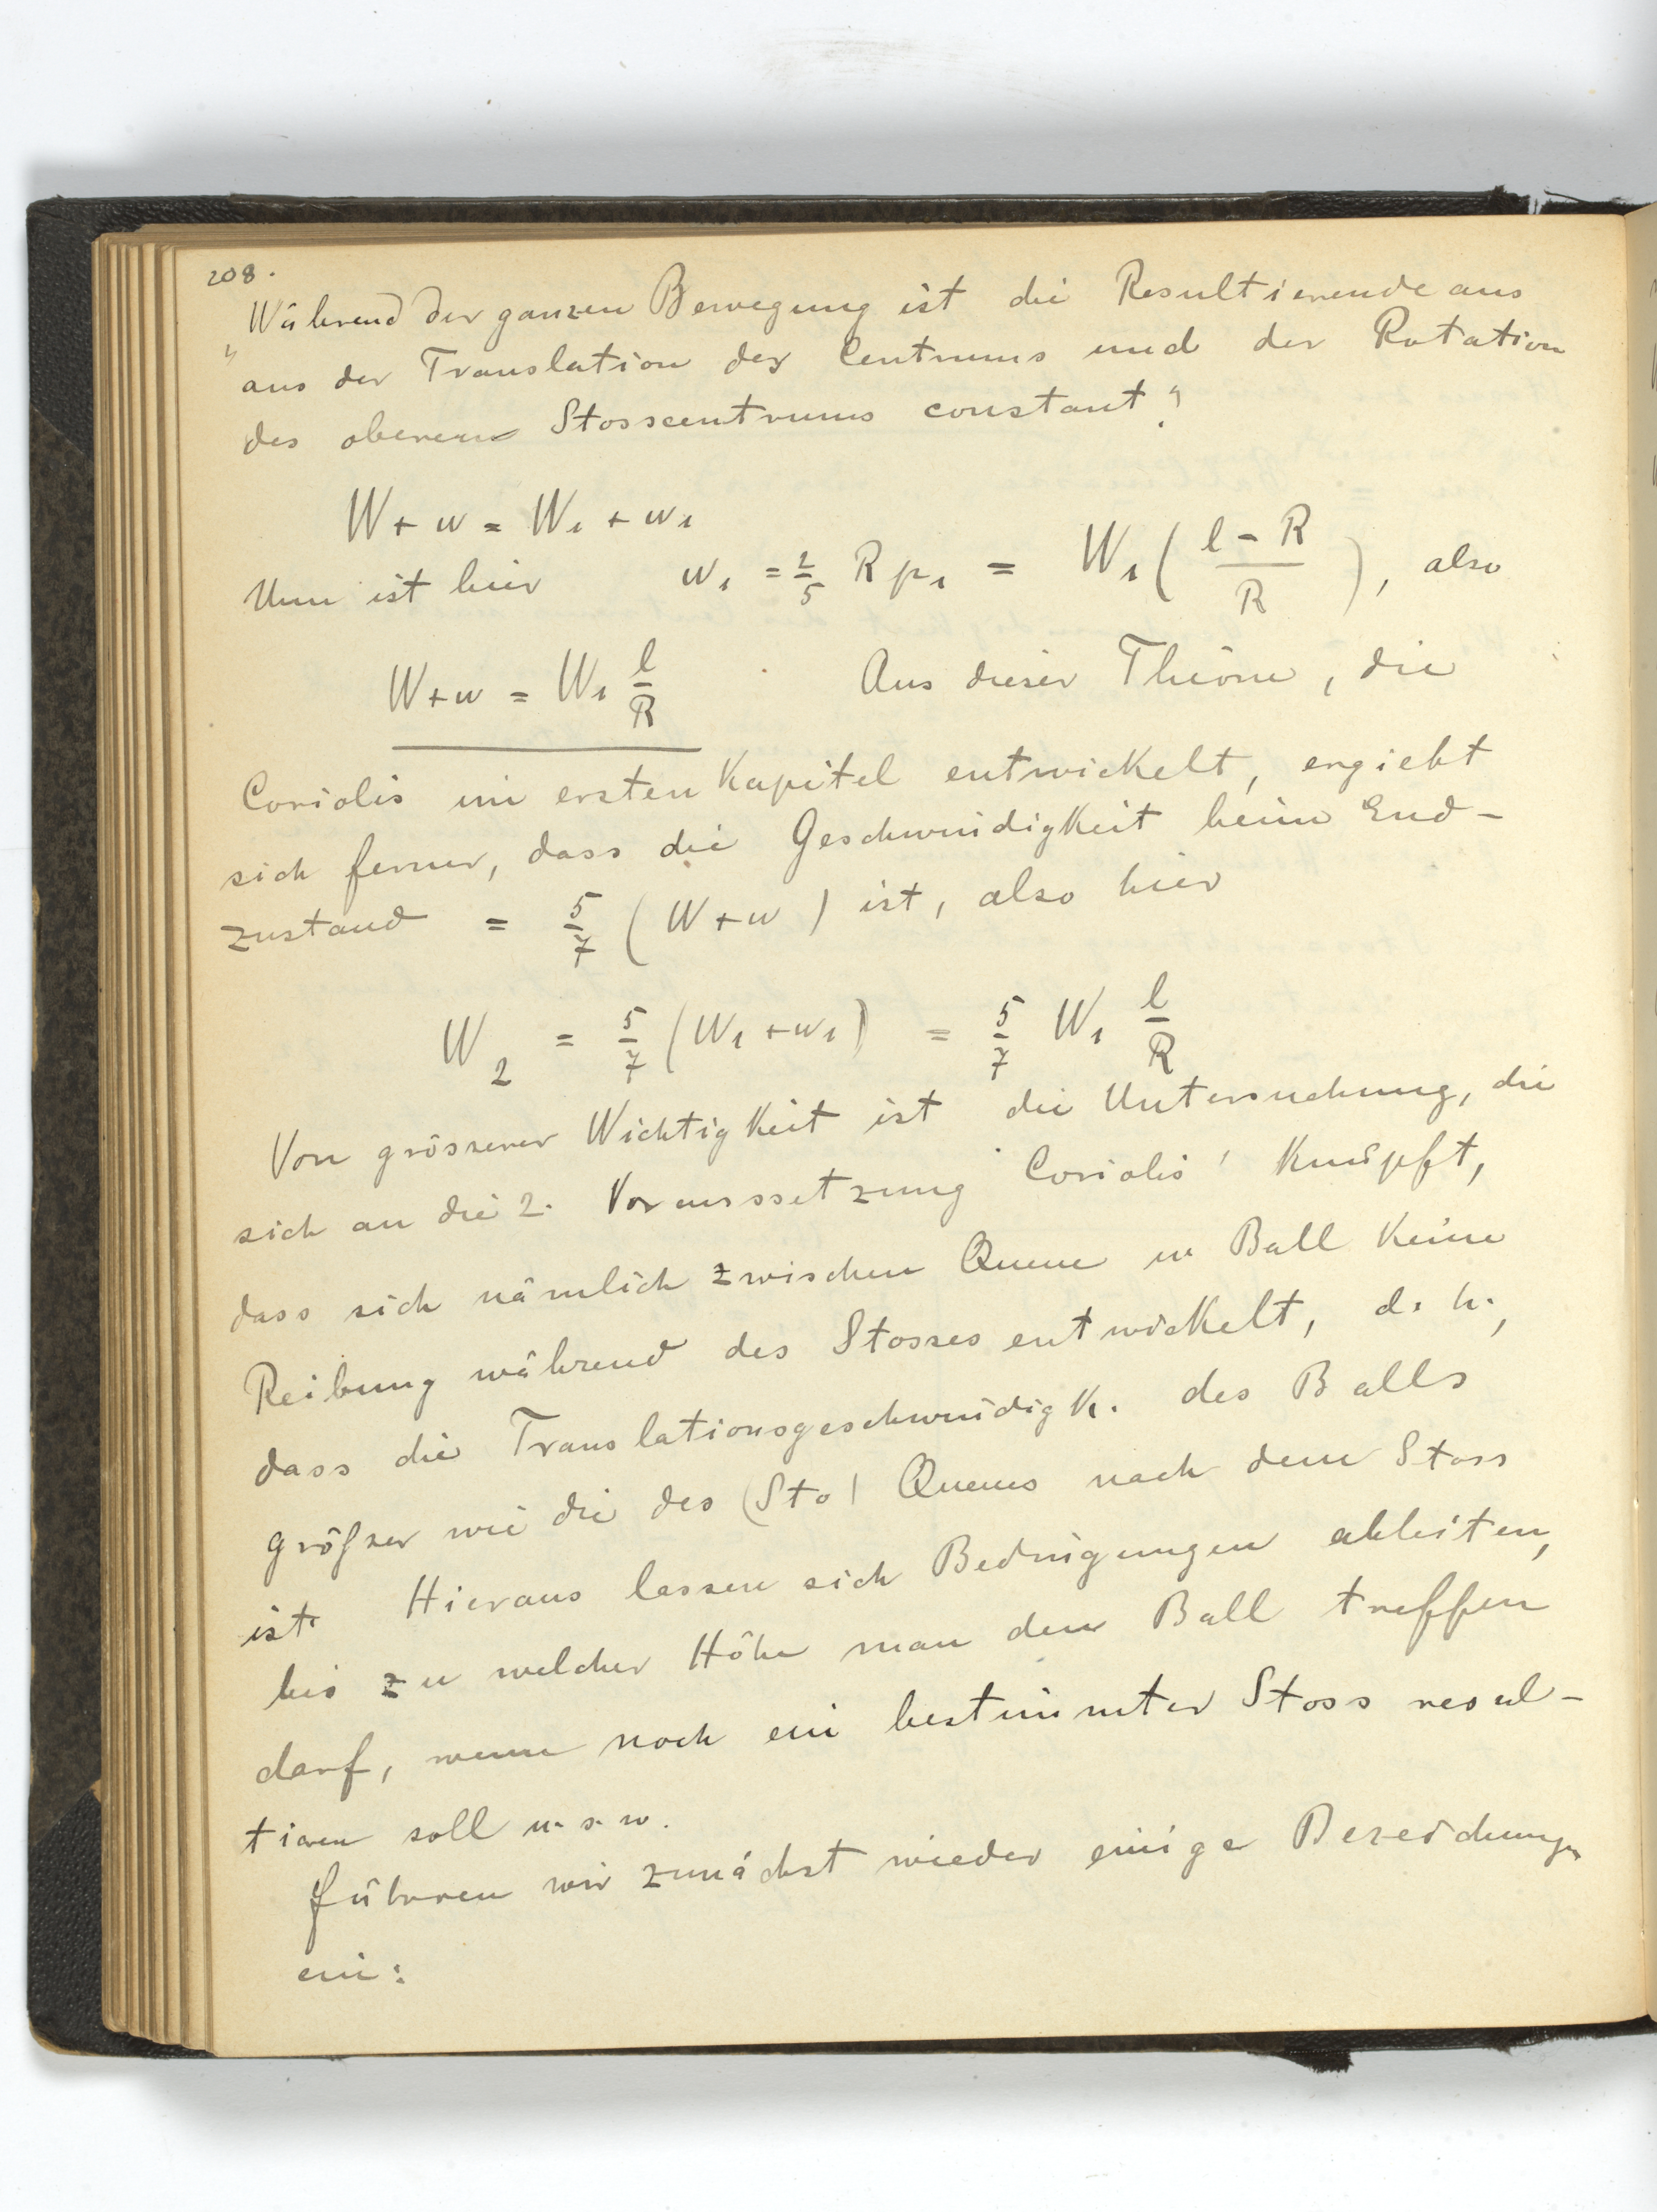 208.
„Während der ganzen Bewegung ist die Resultierende aus
aus der Translation des Centrums und der Rotation
des oberen Stosscentrums constant“.
W + w = W₁ + w₁
Nun ist hier w₁ = 2/5 R p₁ = W₁ ( (l - R)/R ), also
W + w = W₁ l/R Aus dieser Theorie, die
Coriolis im ersten Kapitel entwickelt, ergiebt
sich ferner, dass die Geschwindigkeit beim End-
zustand = 5/7 (W + w) ist, also hier
W₂ = 5/7 (W₁ + w₁) = 5/7 W₁ l/R
Von grösserer Wichtigkeit ist die Untersuchung, die
sich an die 2. Voraussetzung Coriolis' knüpft,
dass sich nämlich zwischen Queue u Ball keine
Reibung während des Stosses entwickelt, d. h.,
dass die Translationsgeschwindigk. des Balls
größer wie die des (Sto) Queues nach dem Stoss
ist. Hieraus lassen sich Bedingungen ableiten,
bis zu welcher Höhe man den Ball treffen
darf, wenn noch ein bestimmter Stoss resul-
tieren soll u. s. w.
führen wir zunächst wieder einige Bezeichnungen
ein: